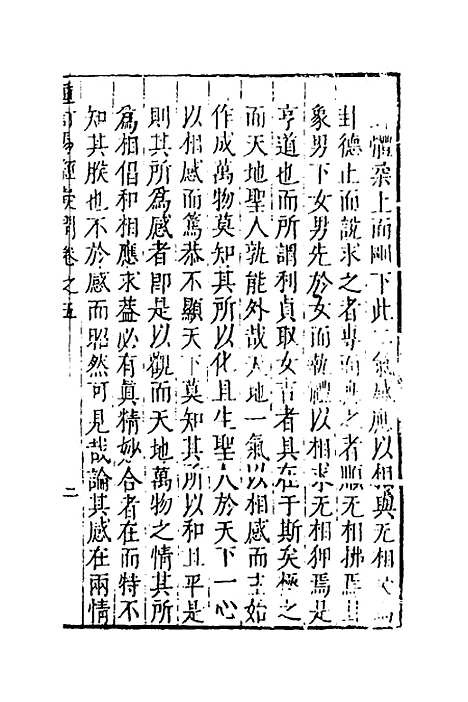 體柔上而剛下此二氣感應以相與无相
卦德止而說求之者專而與之者順无相拂焉且
象男下女男先於女而執禮以相求无相狎焉是
亨道也而所謂利貞取女吉者具在于斯矣極之
而天地聖人孰能外哉天地一氣以相感而主始
作成萬物莫知其所以化且生聖人於天下一心
以相感而篤恭不顯天下莫知其所以和且平是
則其所爲感者卽是以觀而天地萬物之情其所
爲相倡和相應求葢必有眞精妙合者在而特不
知其朕也不於感而昭然可見哉論其感在兩情
重訂易經疑問卷之五
二